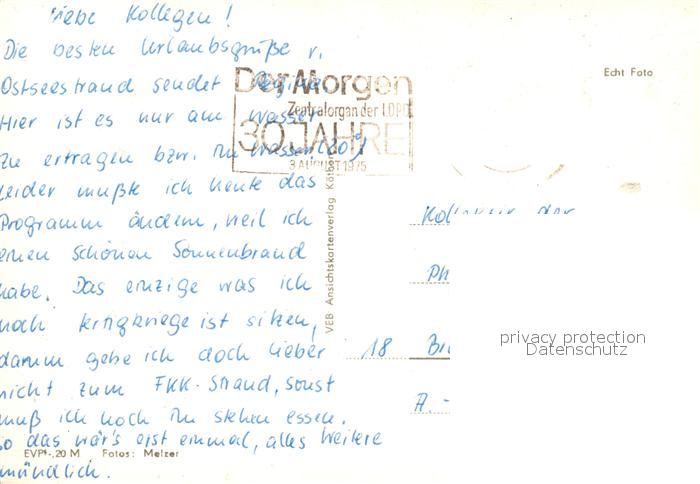 Liebe Kollegen!
Die besten Urlaubsgrüße v.
Ostseestrand sendet
Hier ist es nur am Wasser
zu ertragen bzw. im Wasser (20°)
Leider mußte ich heute das
Programm ändern, weil ich
einen schönen Sonnenbrand
habe. Das einzige was ich
noch fertigkriege ist sitzen,
darum gehe ich doch lieber
nicht zum FKK-Strand, sonst
muß ich noch im stehen essen.
So das wär's erst einmal, alles weitere
mündlich.
EVP -,20 M Fotos: Melzer
Der Morgen
Zentralorgan der LDPD
30 JAHRE
3. AUGUST 1975
VEB Ansichtskartenverlag
Echt Foto
der
Ph
18
A.-
privacy protection
Datenschutz